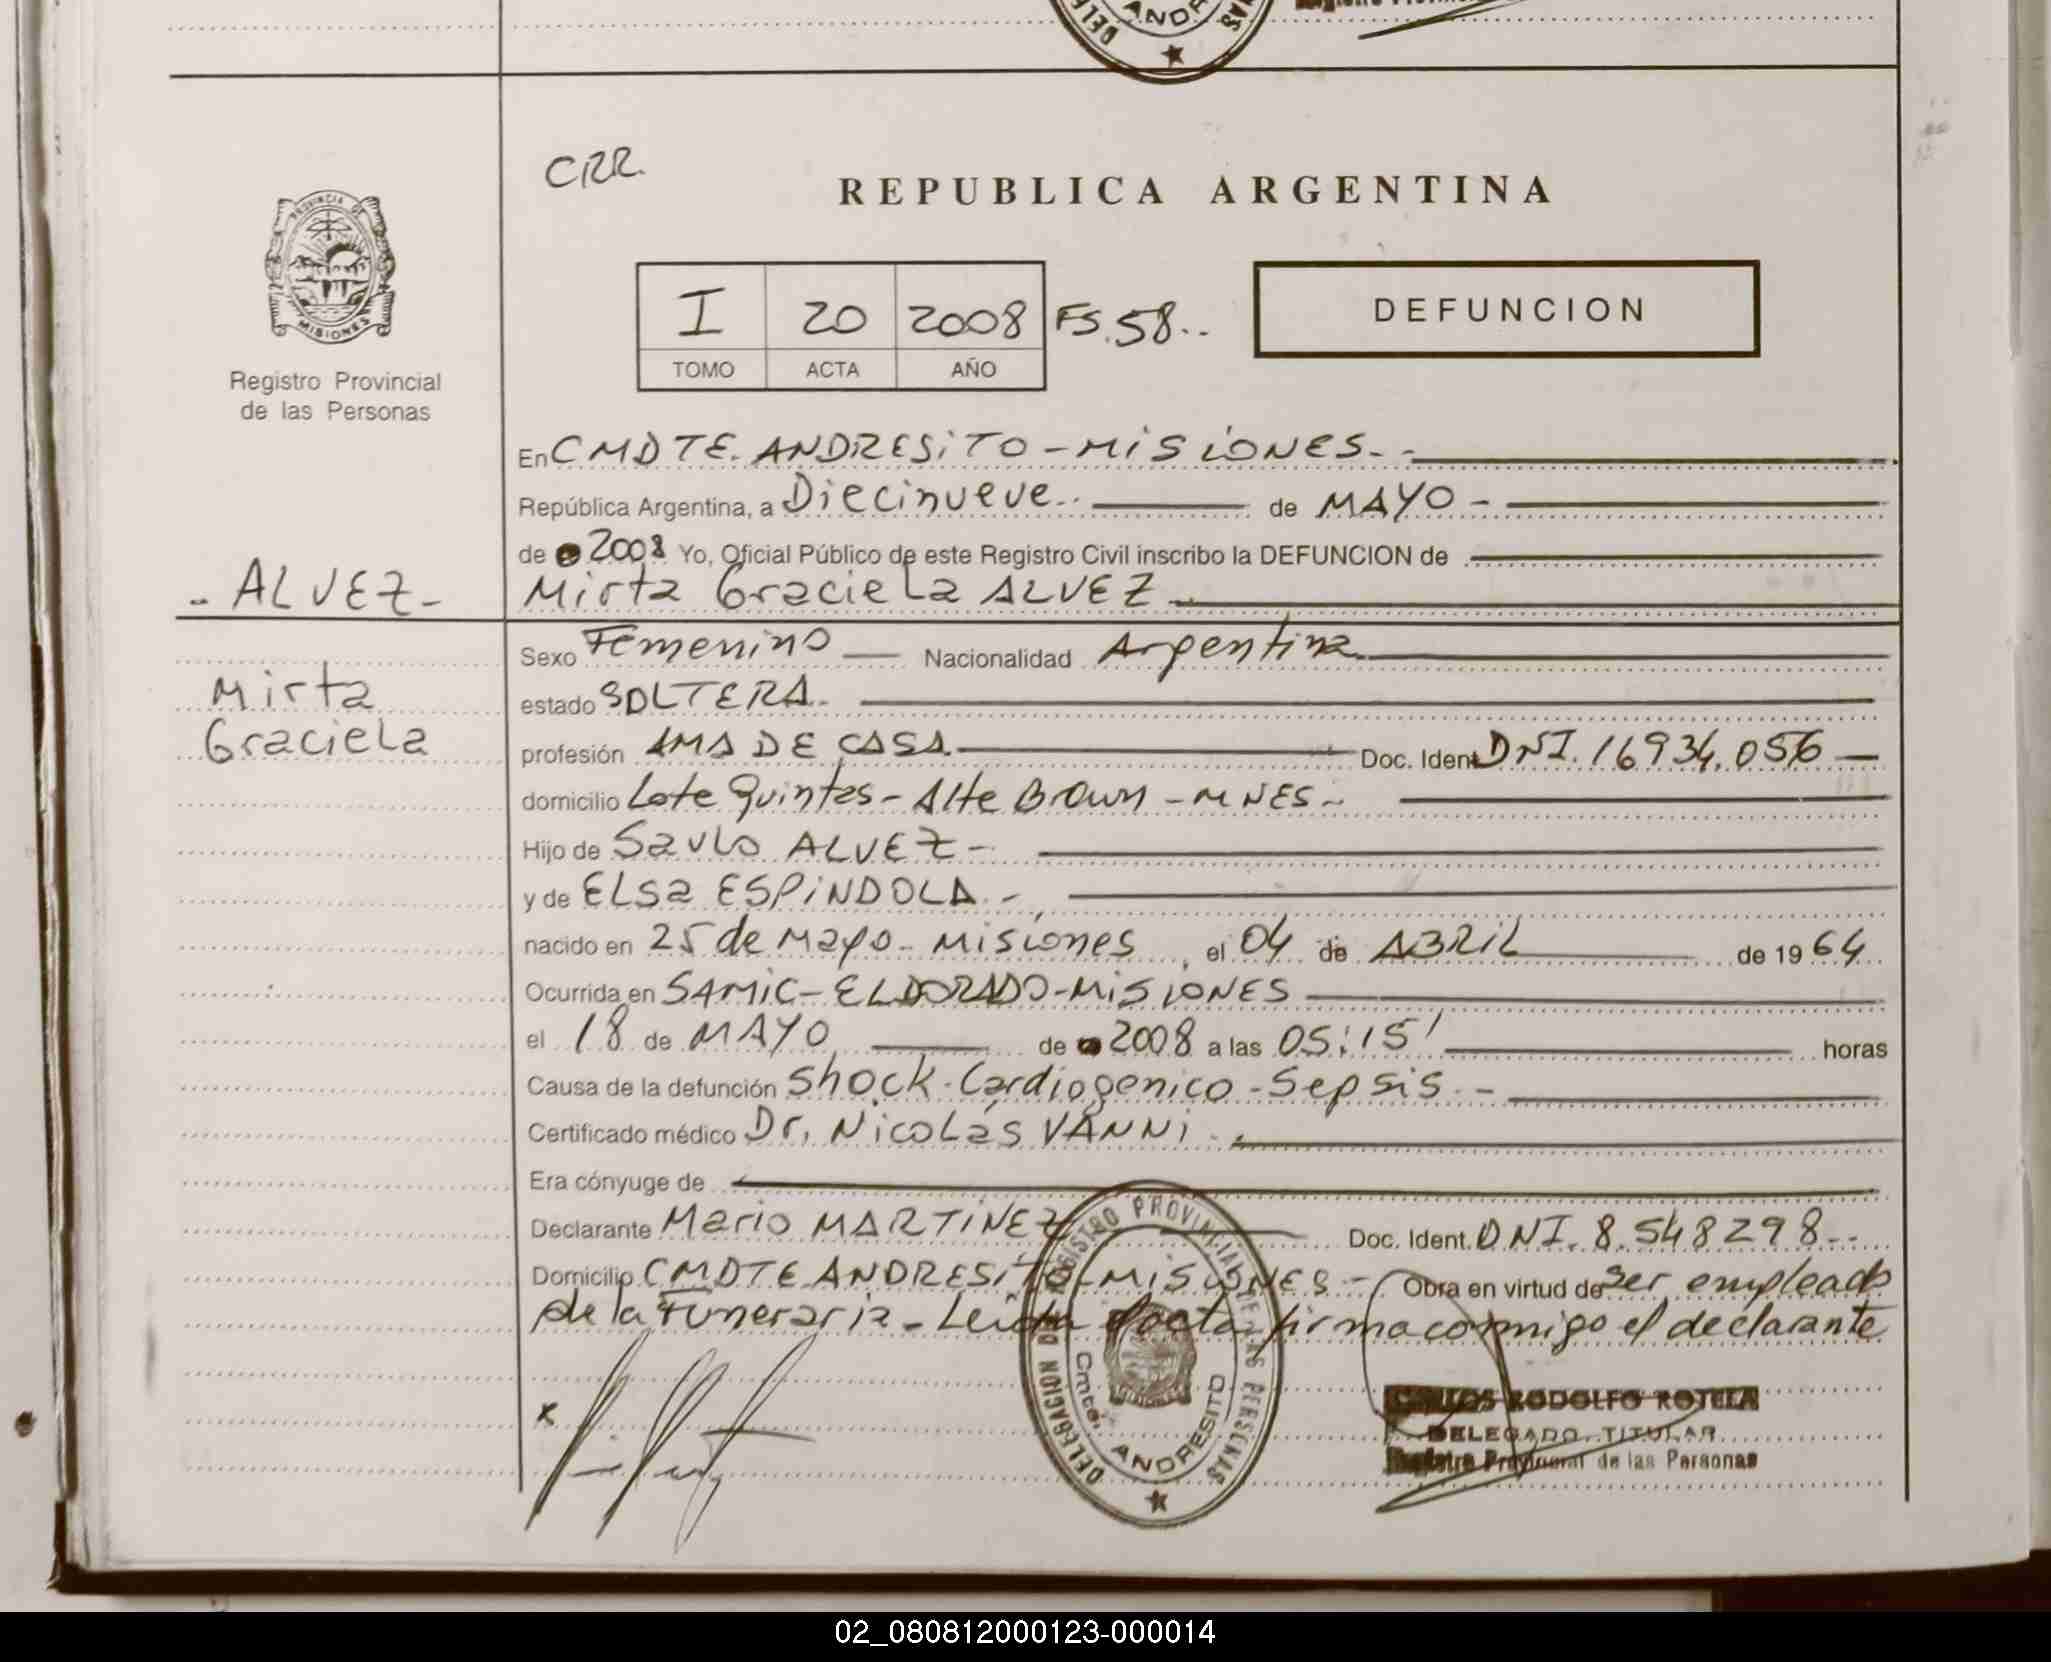 CRR.
REPUBLICA ARGENTINA
PROVINCIA DE MISIONES
Registro Provincial
de las Personas
I 20 2008 FS.58..
TOMO ACTA AÑO
DEFUNCION
En CMDTE. ANDRESiTO - MiSiONES.-
República Argentina, a Diecinueve.. de MAYO -
de 2008 Yo, Oficial Público de este Registro Civil inscribo la DEFUNCION de
- ALVEZ -
Mirta Graciela ALVEZ
Mirta
Graciela
Sexo Femenino Nacionalidad Argentina
estado SOLTERA.
profesión AMA DE CASA. Doc. Ident DNI. 16934.056
domicilio Lote Quintas - Alte Brown - MNES -
Hijo de Saulo ALVEZ -
y de ELSa ESPiNDOLA. -
nacido en 25 de Mayo - Misiones, el 04 de ABRiL de 1964
Ocurrida en SAMiC - ELDORADO - MiSiONES
el 18 de MAYO de 2008 a las 05:15' horas
Causa de la defunción Shock Cardiogenico - Sepsis. -
Certificado médico Dr. Nicolás VANNi
Era cónyuge de
Declarante Mario MARTiNEZ Doc. Ident. DNI. 8.548298 -
Domicilio CMDTE ANDRESiTO - MiSiONES - Obra en virtud de ser empleado
de la Funeraria - Leida el acta firma conmigo el declarante
x
DELEGACION DEL REGISTRO PROVINCIAL DE LAS PERSONAS
Cmte. ANDRESITO
CARLOS RODOLFO ROTELA
DELEGADO TITULAR
Registro Provincial de las Personas
02_080812000123-000014